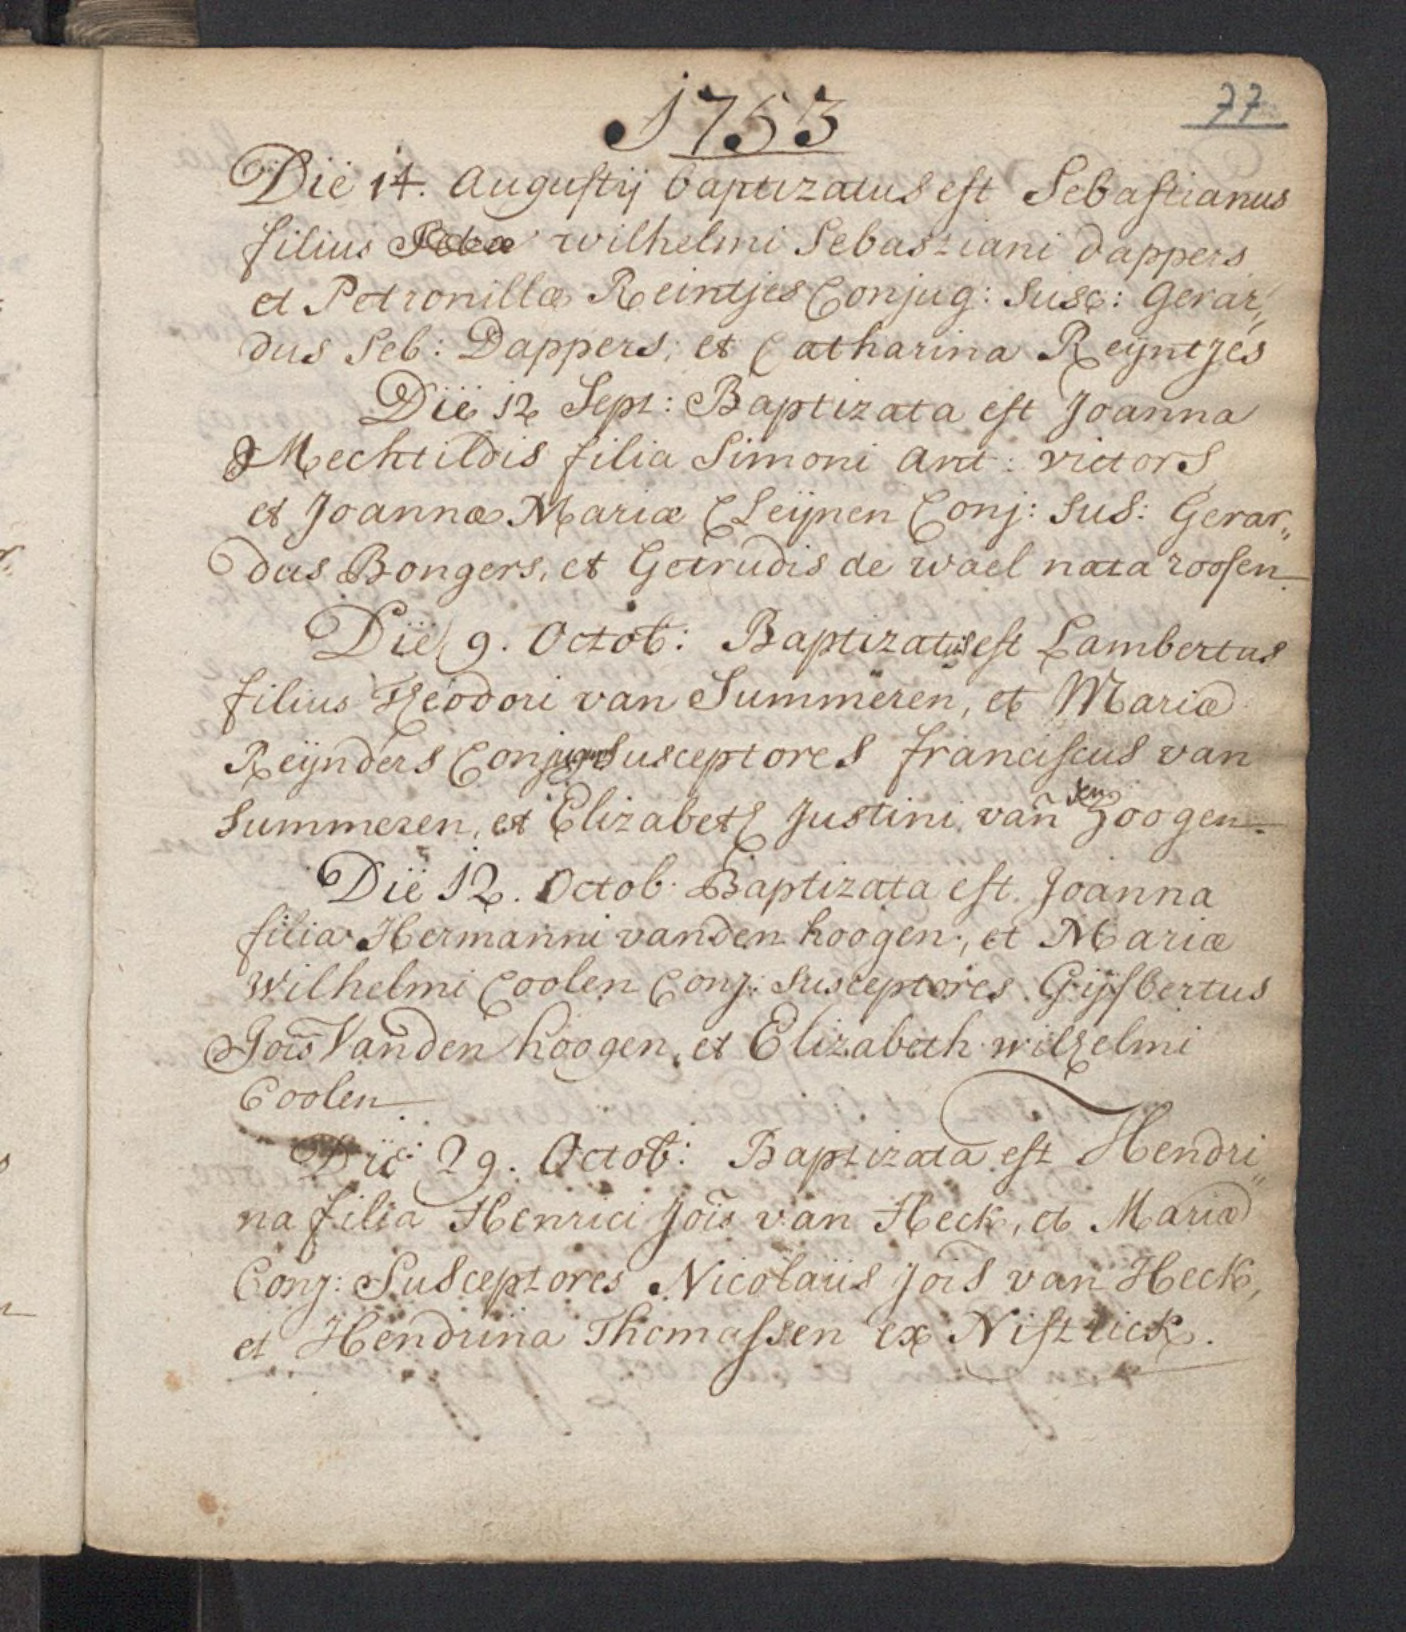 77
1753
Die 14. Augustij baptizatus est Sebastianus
filius wilhelmi Sebastiani dappers
et Petronillæ Reintjes Conjug: Susc: Gerar„
dus Seb: Dappers, et Catharina Reijntjes
Die 12 Sept: Baptizata est Joanna
Mechtildis filia Simoni Ant: victors
et Joannæ Mariæ Cleijnen Conj: Sus: Gerar„
dus Bongers, et Getrudis de wael nata roosen
Die 9. Octob: Baptizatus est Lambertus
filius Theodori van Summeren, et Mariæ
Reijnders Conjug Susceptores franciscus van
Summeren, et Elizabeth Justini van den Hoogen.
Die 12. Octob: Baptizata est Joanna
filia Hermanni vanden hoogen, et Mariæ
Wilhelmi Coolen Conj: Susceptores Gijsbertus
Jois Vanden hoogen, et Elizabeth wilhelmi
Coolen
Die 29. Octob: Baptizata est Hendri„
na filia Henrici Jois van Heck, et Mariæ
Conj: Susceptores Nicolaus Jois van Heck,
et Hendrina Thomassen ex Nistrick.